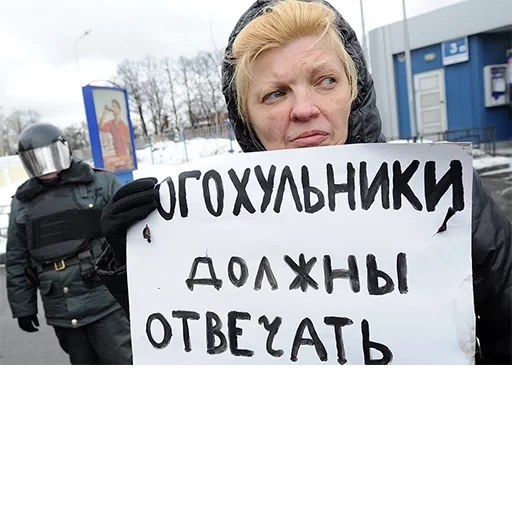 ОГОХУЛЬНИКИ
ДОЛЖНЫ
ОТВЕЧАТЬ
3